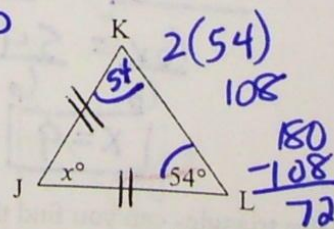 K
2(54)
54
108
180
-108
72
J
x°
54°
L